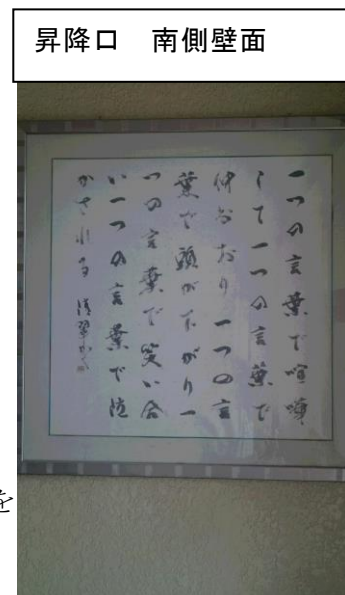 昇降口　南側壁面
一つの言葉で喧嘩
して一つの言葉で
仲なおり 一つの言
葉で頭が下がり一
つの言葉で笑い合
い一つの言葉で泣
かされる
を